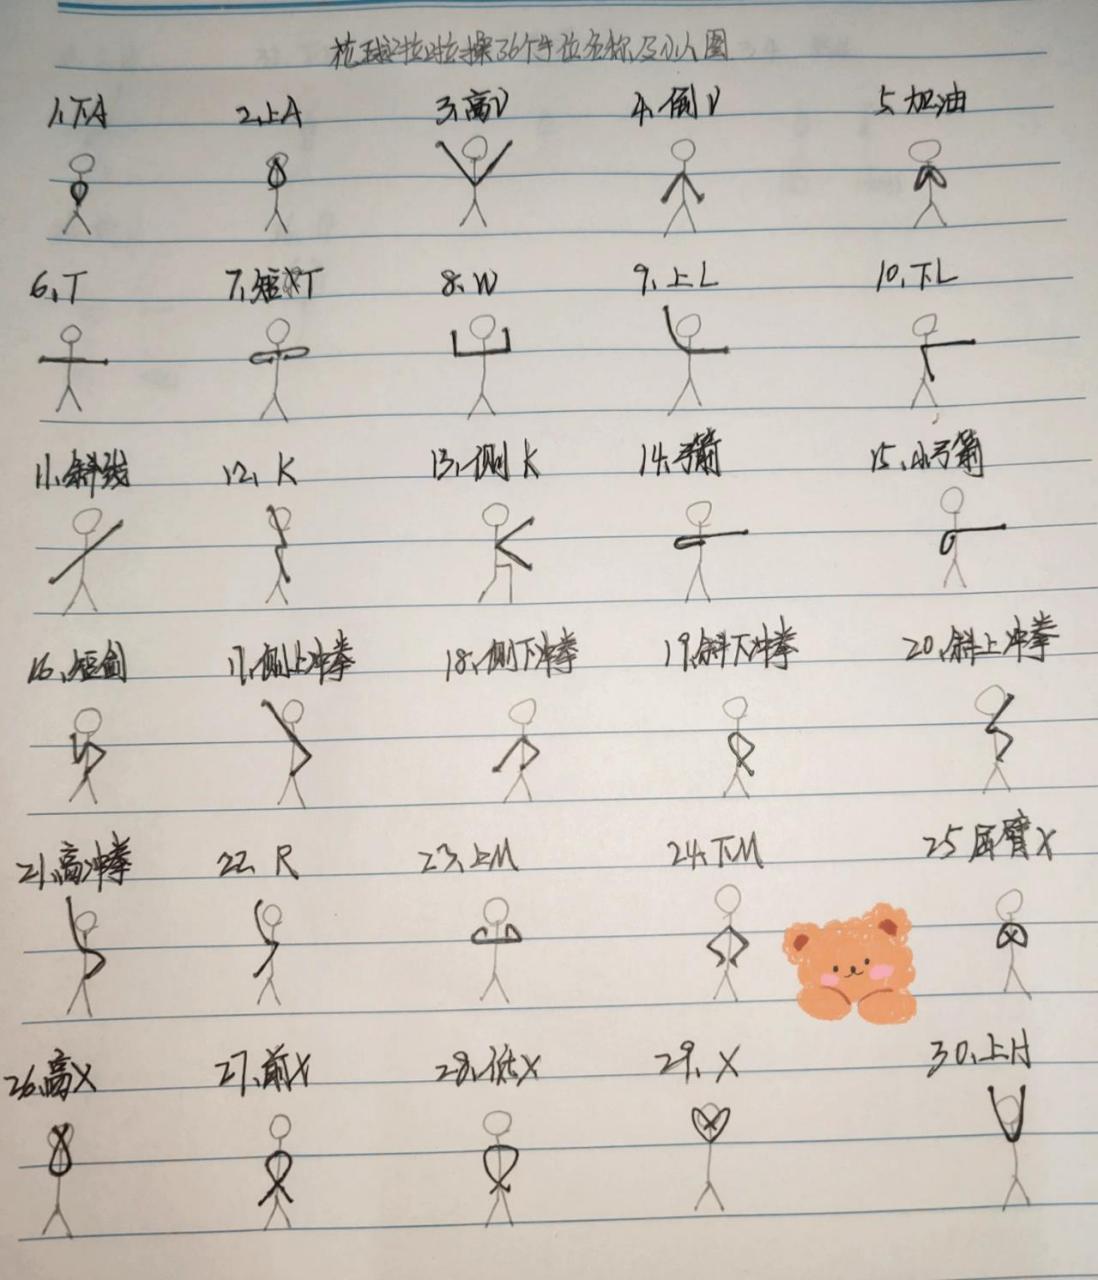 花球啦啦操36个手位名称及小人图
1、下A 2、上A 3、高V 4、倒V 5、加油
6、T 7、短T 8、W 9、上L 10、下L
11、斜线 12、K 13、侧K 14、弓箭 15、小弓箭
16、短剑 17、侧上冲拳 18、侧下冲拳 19、斜下冲拳 20、斜上冲拳
21、高冲拳 22、R 23、上M 24、下M 25、屈臂X
26、高X 27、前X 28、低X 29、X 30、上H